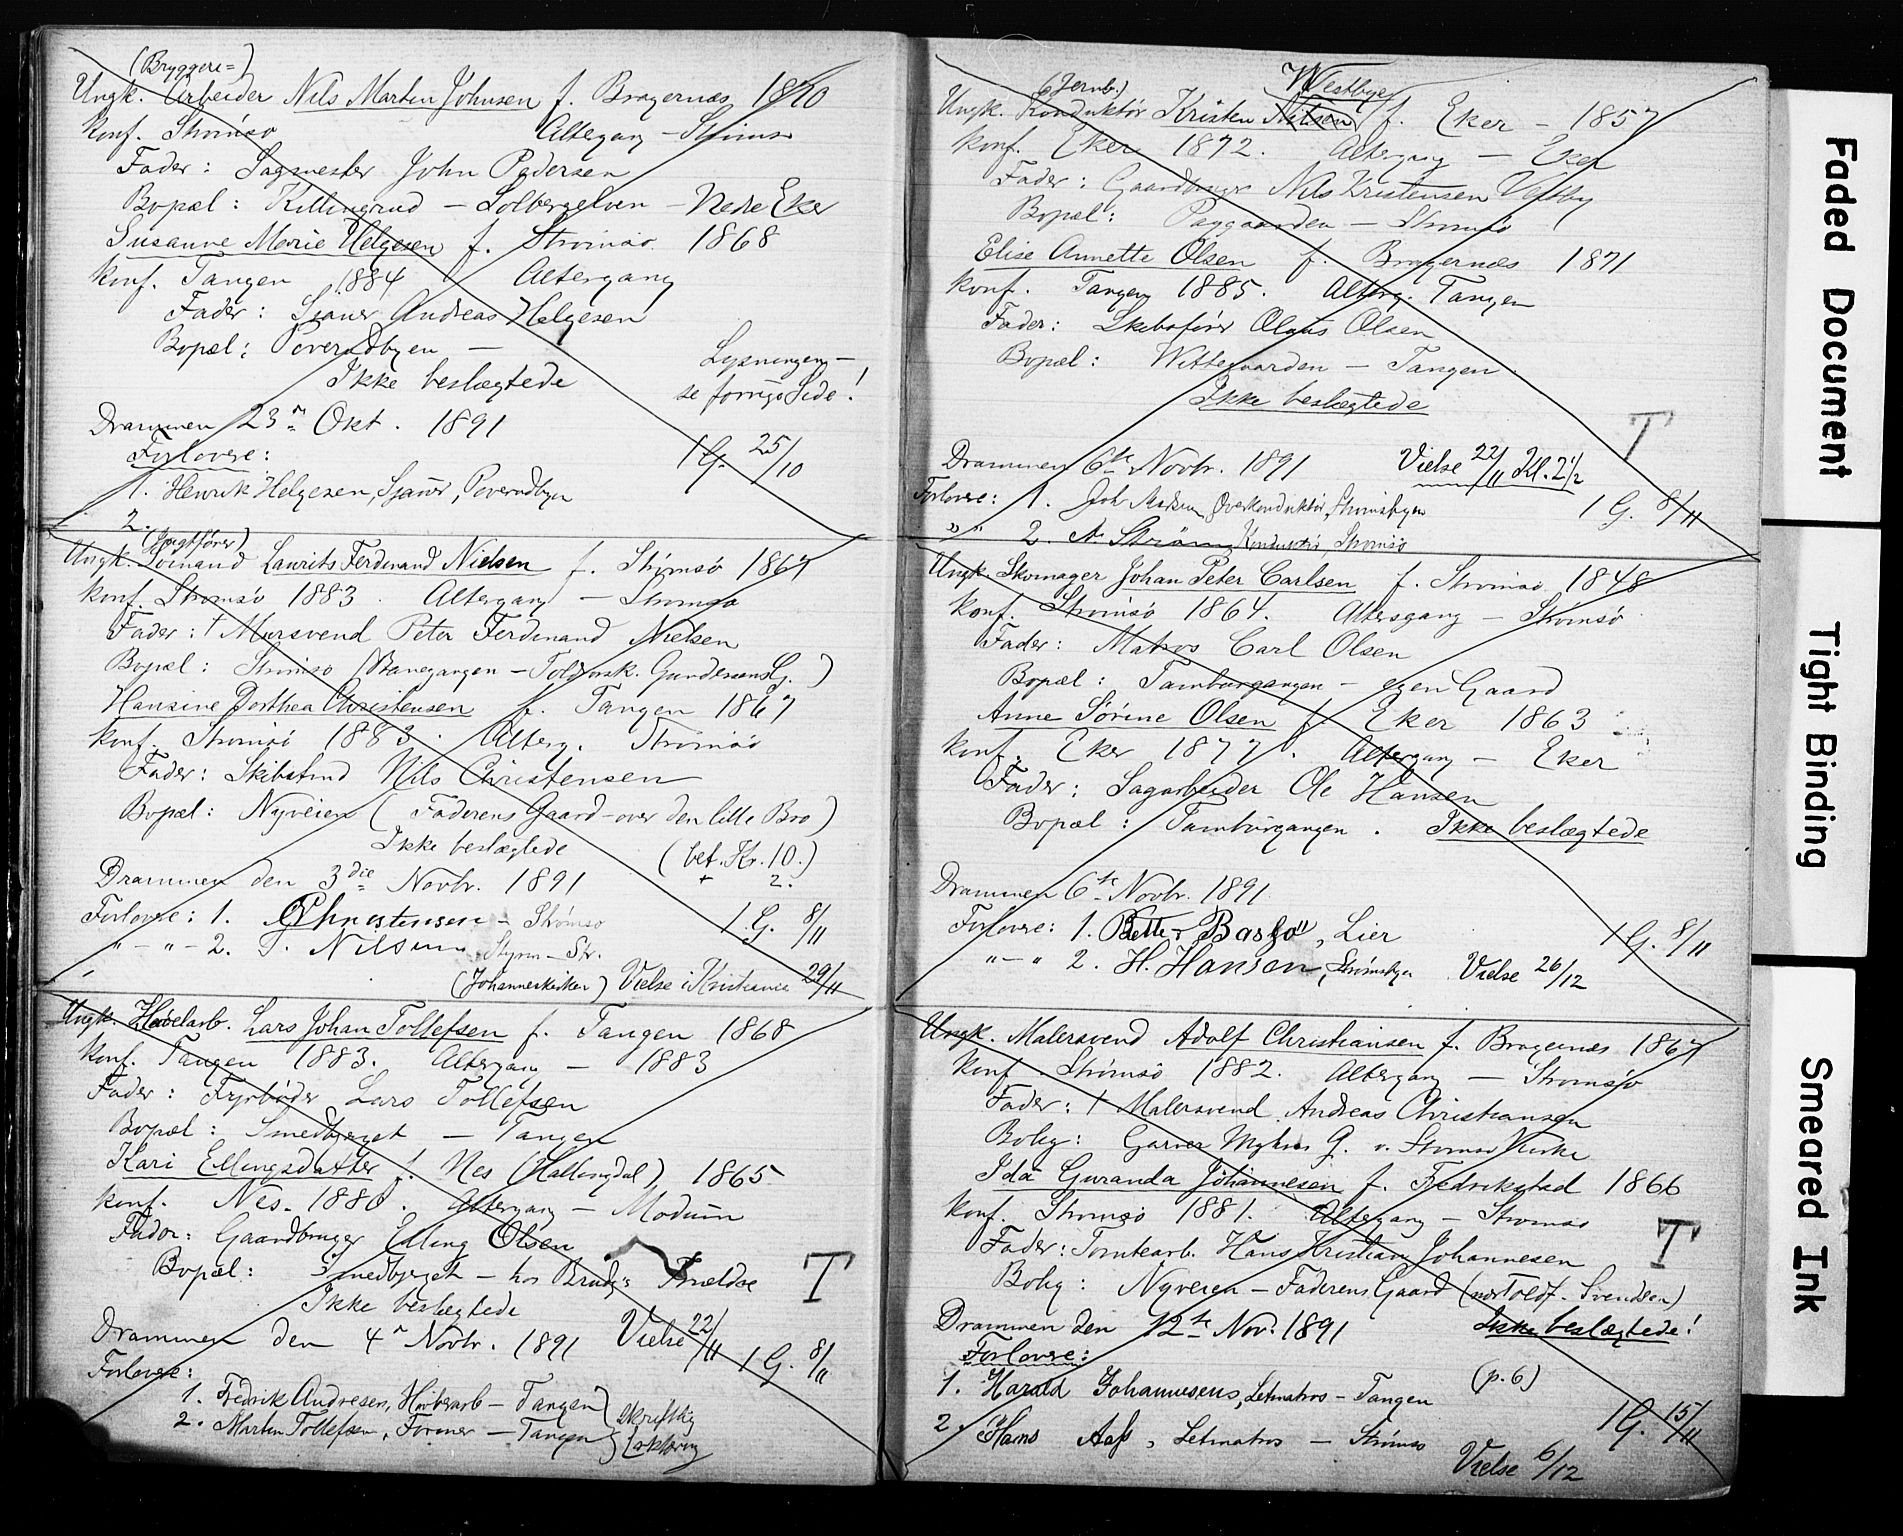 (Bryggeri=)
Ungk. Arbeider Nils Martin Johnsen f. Bragernæs 1870
Konf. Strømsø Altergang - Strømsø
Fader: Sagmester John Pedersen
Bopæl: Killingrud - Solbergelven - Nedre Eker
Susanne Marie Helgesen f. Strømsø 1868
Konf. Tangen 1884 Altergang
Fader: Sjauer Andreas Helgesen
Bopæl: Poverudbyen -
Lysningen -
Ikke beslægtede
se forrige Side!
Drammen 23n Okt. 1891
Forlovere:
1 G. 25/10
1. Henrik Helgesen, Sjauer, Poverudbyen
2.
(Jagtfører)
Ungk. Sømand Laurits Ferdinand Nielsen f. Strømsø 1867
Konf. Strømsø 1883. Altergang - Strømsø
Fader: † Mursvend Peter Ferdinand Nielsen
Bopæl: Strømsø (Banegangen - Toldorsk. Gundersens G.)
Hansine Dorthea Christensen f. Tangen 1867
Konf. Strømsø 1883. Alterg. Strømsø
Fader: Skibstmd Nils Christensen
Bopæl: Nyveien (Faderens Gaard - over den lille Bro)
Ikke beslægtede (bet. Kr. 10.)
+ 2.
Drammen den 3die Novbr. 1891
Forlovere: 1. Christensen - Strømsø 1 G. 8/11
" - " - 2. Nilsen Styrm - Str.
(Johanneskirken) Vielse i Kristiania 29/11
Ungk. Høvelarb. Lars Johan Tollefsen f. Tangen 1868
Konf. Tangen 1883. Altergang - 1883
Fader: Fyrbøder Lars Tollefsen
Bopæl: Smedbjerget - Tangen
Kari Ellingsdatter f. Nes (Hallingdal) 1865
Konf. Nes. 1880. Altergang - Modum
Fader: Gaardbruger Elling Olsen
Bopæl: Smedbjerget - hos Brudg's Forældre
T
Ikke beslægtede
Drammen den 4n Novbr. 1891 Vielse 22/11 1 G. 8/11
Forlovere:
1. Fredrik Andresen, Høvlearb - Tangen
2. Martin Tollefsen, Former - Tangen
Skriftlig
(Jernb.) Westbye
Ungk. Konduktør Kristen Nilsen f. Eker - 1857
Konf. Eker 1872. Altergang - Eker
Fader: Gaardbruger Nils Kristensen Vestby
Bopæl: Paygaarden - Strømsø
Elise Annette Olsen f. Bragernæs 1871
Konf. Tangen 1885. Alterg. Tangen
Fader: Skibsfører Olaus Olsen
Bopæl: Wittegaarden - Tangen
Ikke beslægtede
T
Drammen 6te Novbr. 1891 Vielse 22/11 Kl. 2 1/2
Forlovere: 1. Joh Madsen, Overkonduktør, Strømsbyen 1 G. 8/11
" " 2. A Strøm, Konduktø, Strømsø
Ungk. Skomager Johan Peter Carlsen f. Strømsø 1848
Konf. Strømsø 1864. Altersgang - Strømsø
Fader: Matros Carl Olsen
Bopæl: Tamburgangen - egen Gaard
Anne Sørine Olsen f. Eker 1863
Konf. Eker 1877. Altergang - Eker
Fader: Sagarbeider Ole Hansen
Bopæl: Tamburgangen. Ikke beslægtede
Drammen 6te Novbr. 1891
Forlovere: 1. Petter Basso, Lier 1 G. 8/11
" - " 2. H. Hansen, Strømsbyen Vielse 26/12
Ungk. Malersvend Adolf Christiansen f. Bragernæs 1867
Konf. Strømsø 1882. Altergang - Strømsø
Fader: † Malersvend Andreas Christiansen
Bolig: Garver Myhres G. v. Strømsø Kirke
Ida Guranda Johannesen f. Fredrikstad 1866
Konf. Strømsø 1881. Altergang - Strømsø
Fader: Tomtearb. Hans Kristian Johannesen
T
Bolig: Nyveien - Faderens Gaard (ved Toldf. Svendsen)
Drammen den 12te Nov. 1891 Ikke beslægtede!
Forlovere:
(p. 6)
1. Harald Johannesens, Letmatros - Tangen
1 G. 15/11
2. Hans Aas, Letmatros - Strømsø
Vielse 6/12
Faded Document
Tight Binding
Smeared Ink